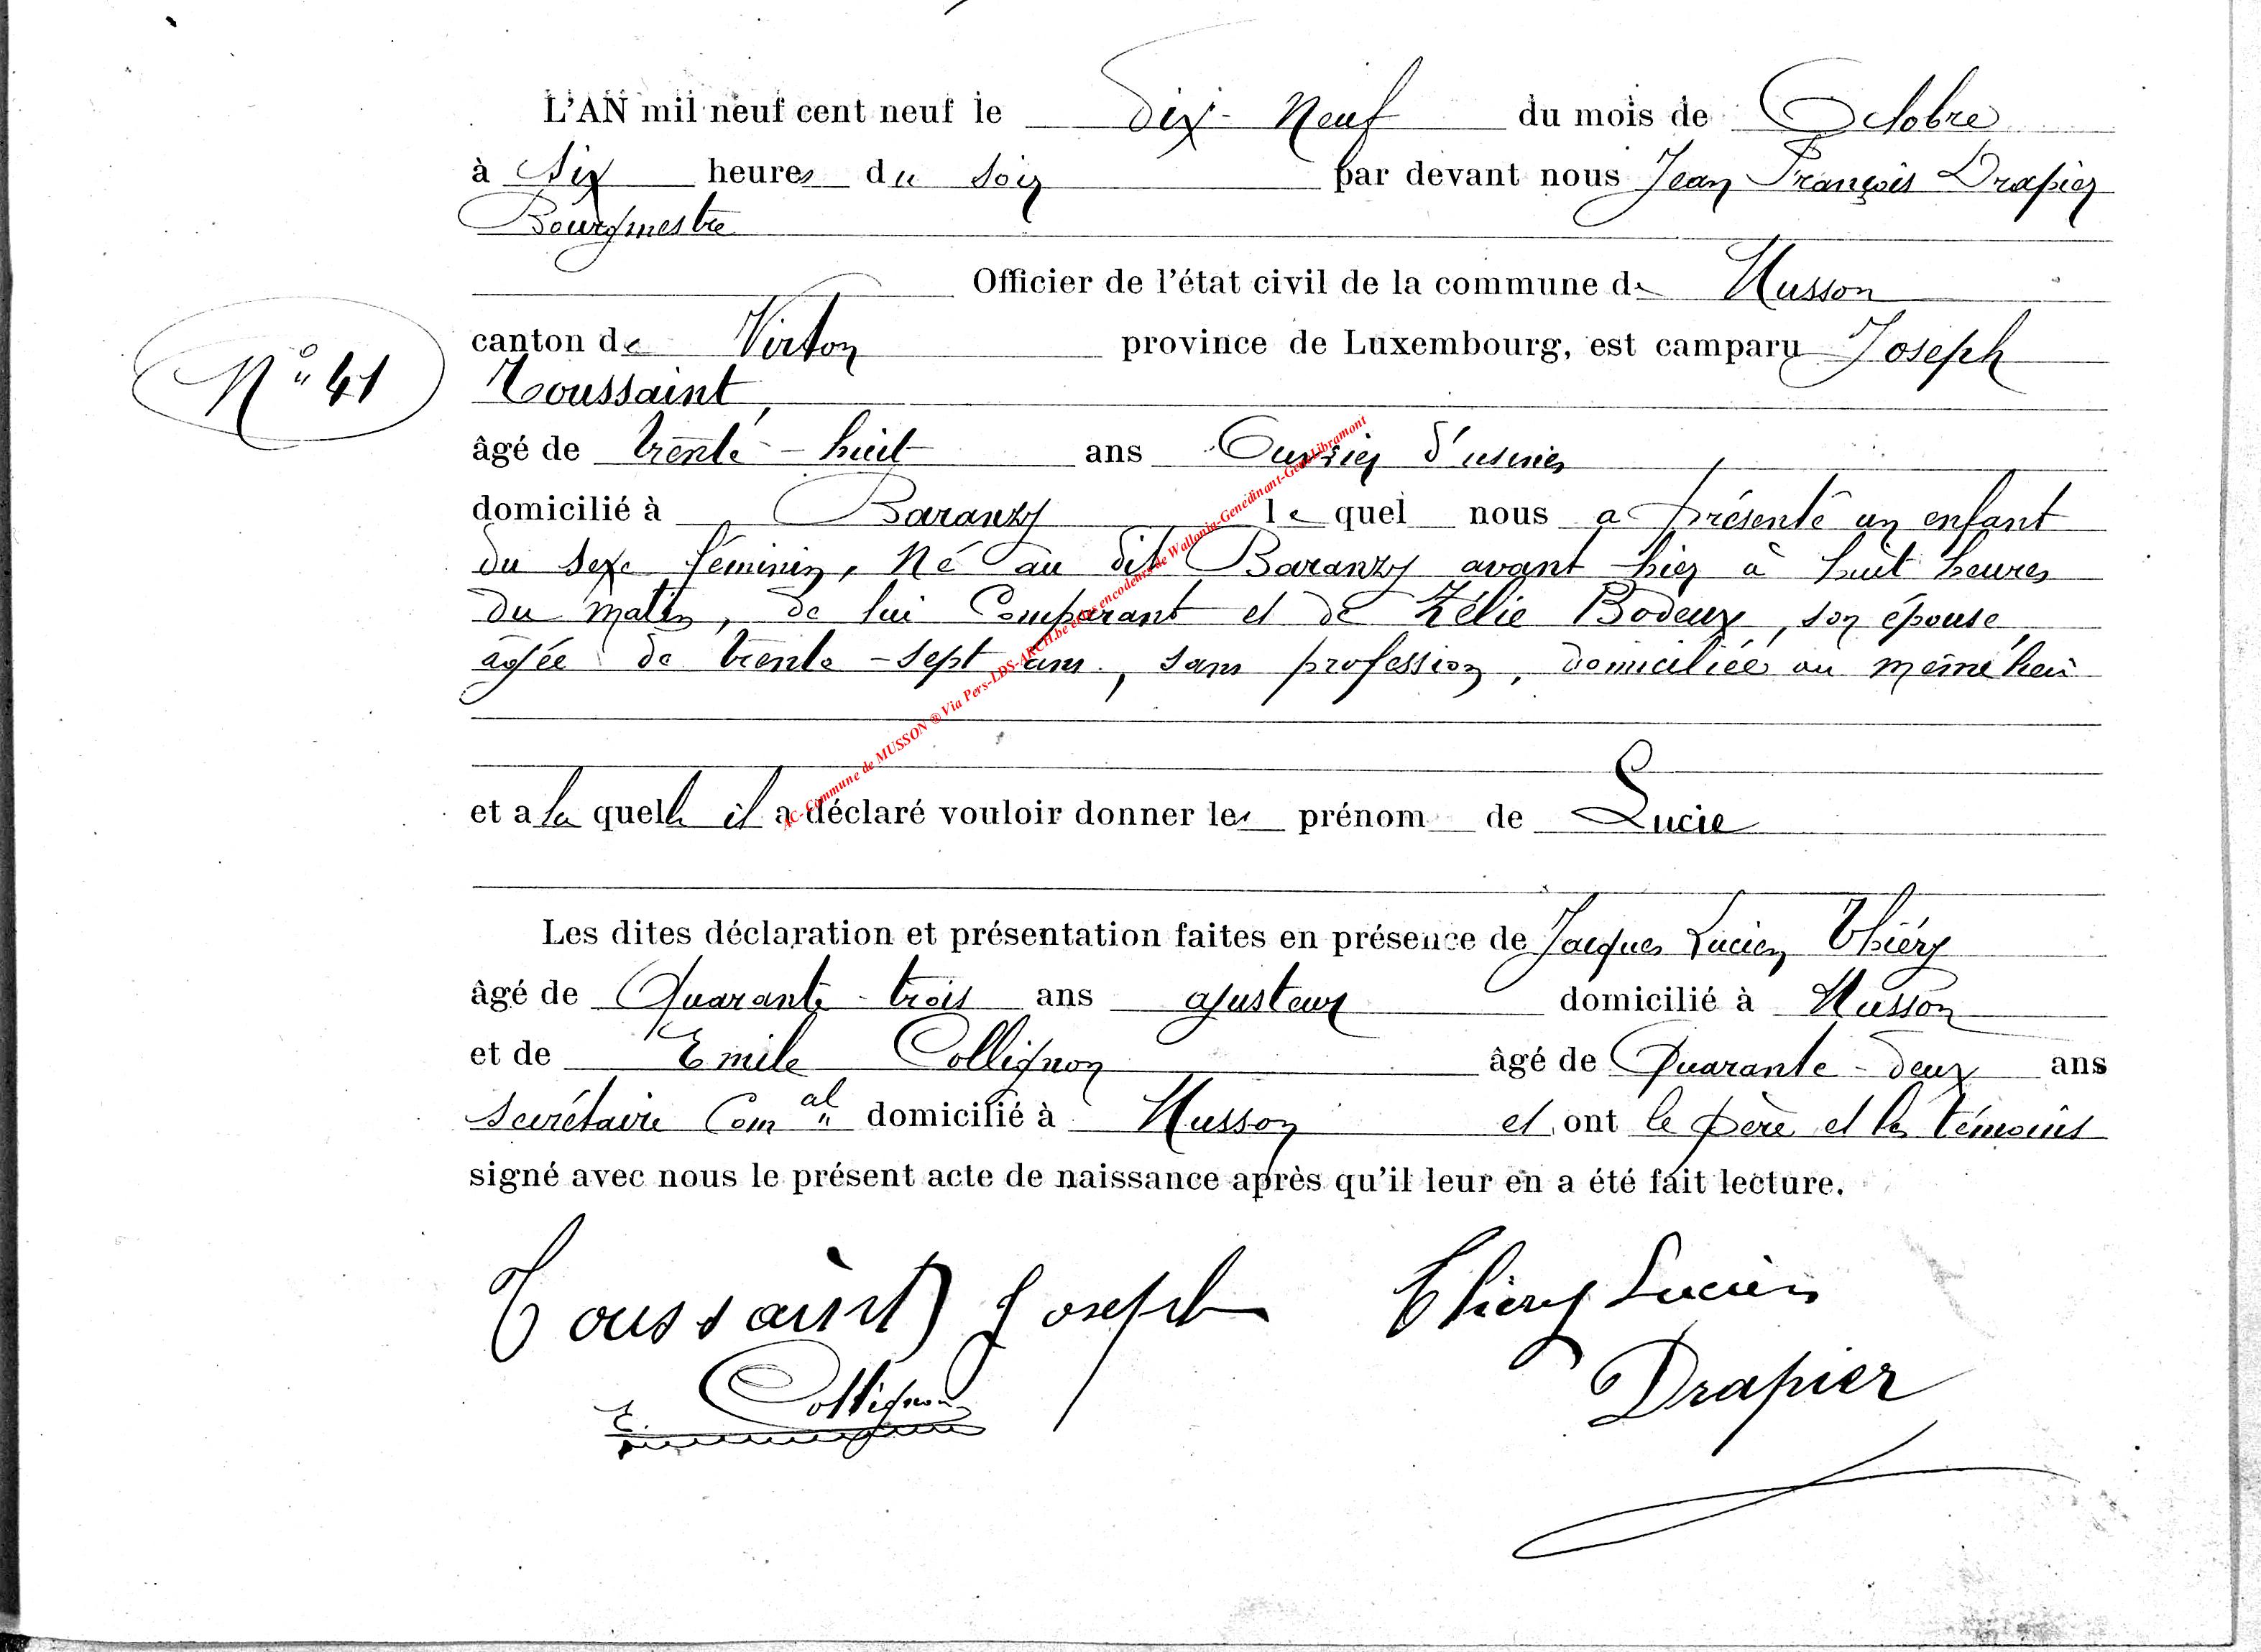 L'AN mil neuf cent neuf le dix-neuf du mois de Octobre
à six heures du soir par devant nous Jean François Drapier
Bourgmestre
Officier de l'état civil de la commune de Musson
canton de Virton province de Luxembourg, est camparu Joseph
N° 41
Toussaint,
âgé de trente-huit ans Ouvrier d'usines
domicilié à Baranzy le quel nous a présenté un enfant
du sexe féminin, né au dit Baranzy avant hier à huit heures
du matin, de lui Comparant et de Zélie Bodeux, son épouse,
âgée de trente-sept ans, sans profession, domiciliée au même lieu
et a la quelle il a déclaré vouloir donner les prénom de Lucie
Les dites déclaration et présentation faites en présence de Jacques Lucien Thiéry
âgé de Quarante-trois ans ajusteur domicilié à Musson
et de Emile Collignon âgé de Quarante-deux ans
secrétaire Com al domicilié à Musson et ont le père et les témoins
signé avec nous le présent acte de naissance après qu'il leur en a été fait lecture.
Toussaint Joseph Thiéry Lucien
E. Collignon Drapier
AC-Commune de MUSSON ® Via Pers-LDS-ARCH.be et les encodeurs de Wallonia-Genedinant-GenLibramont